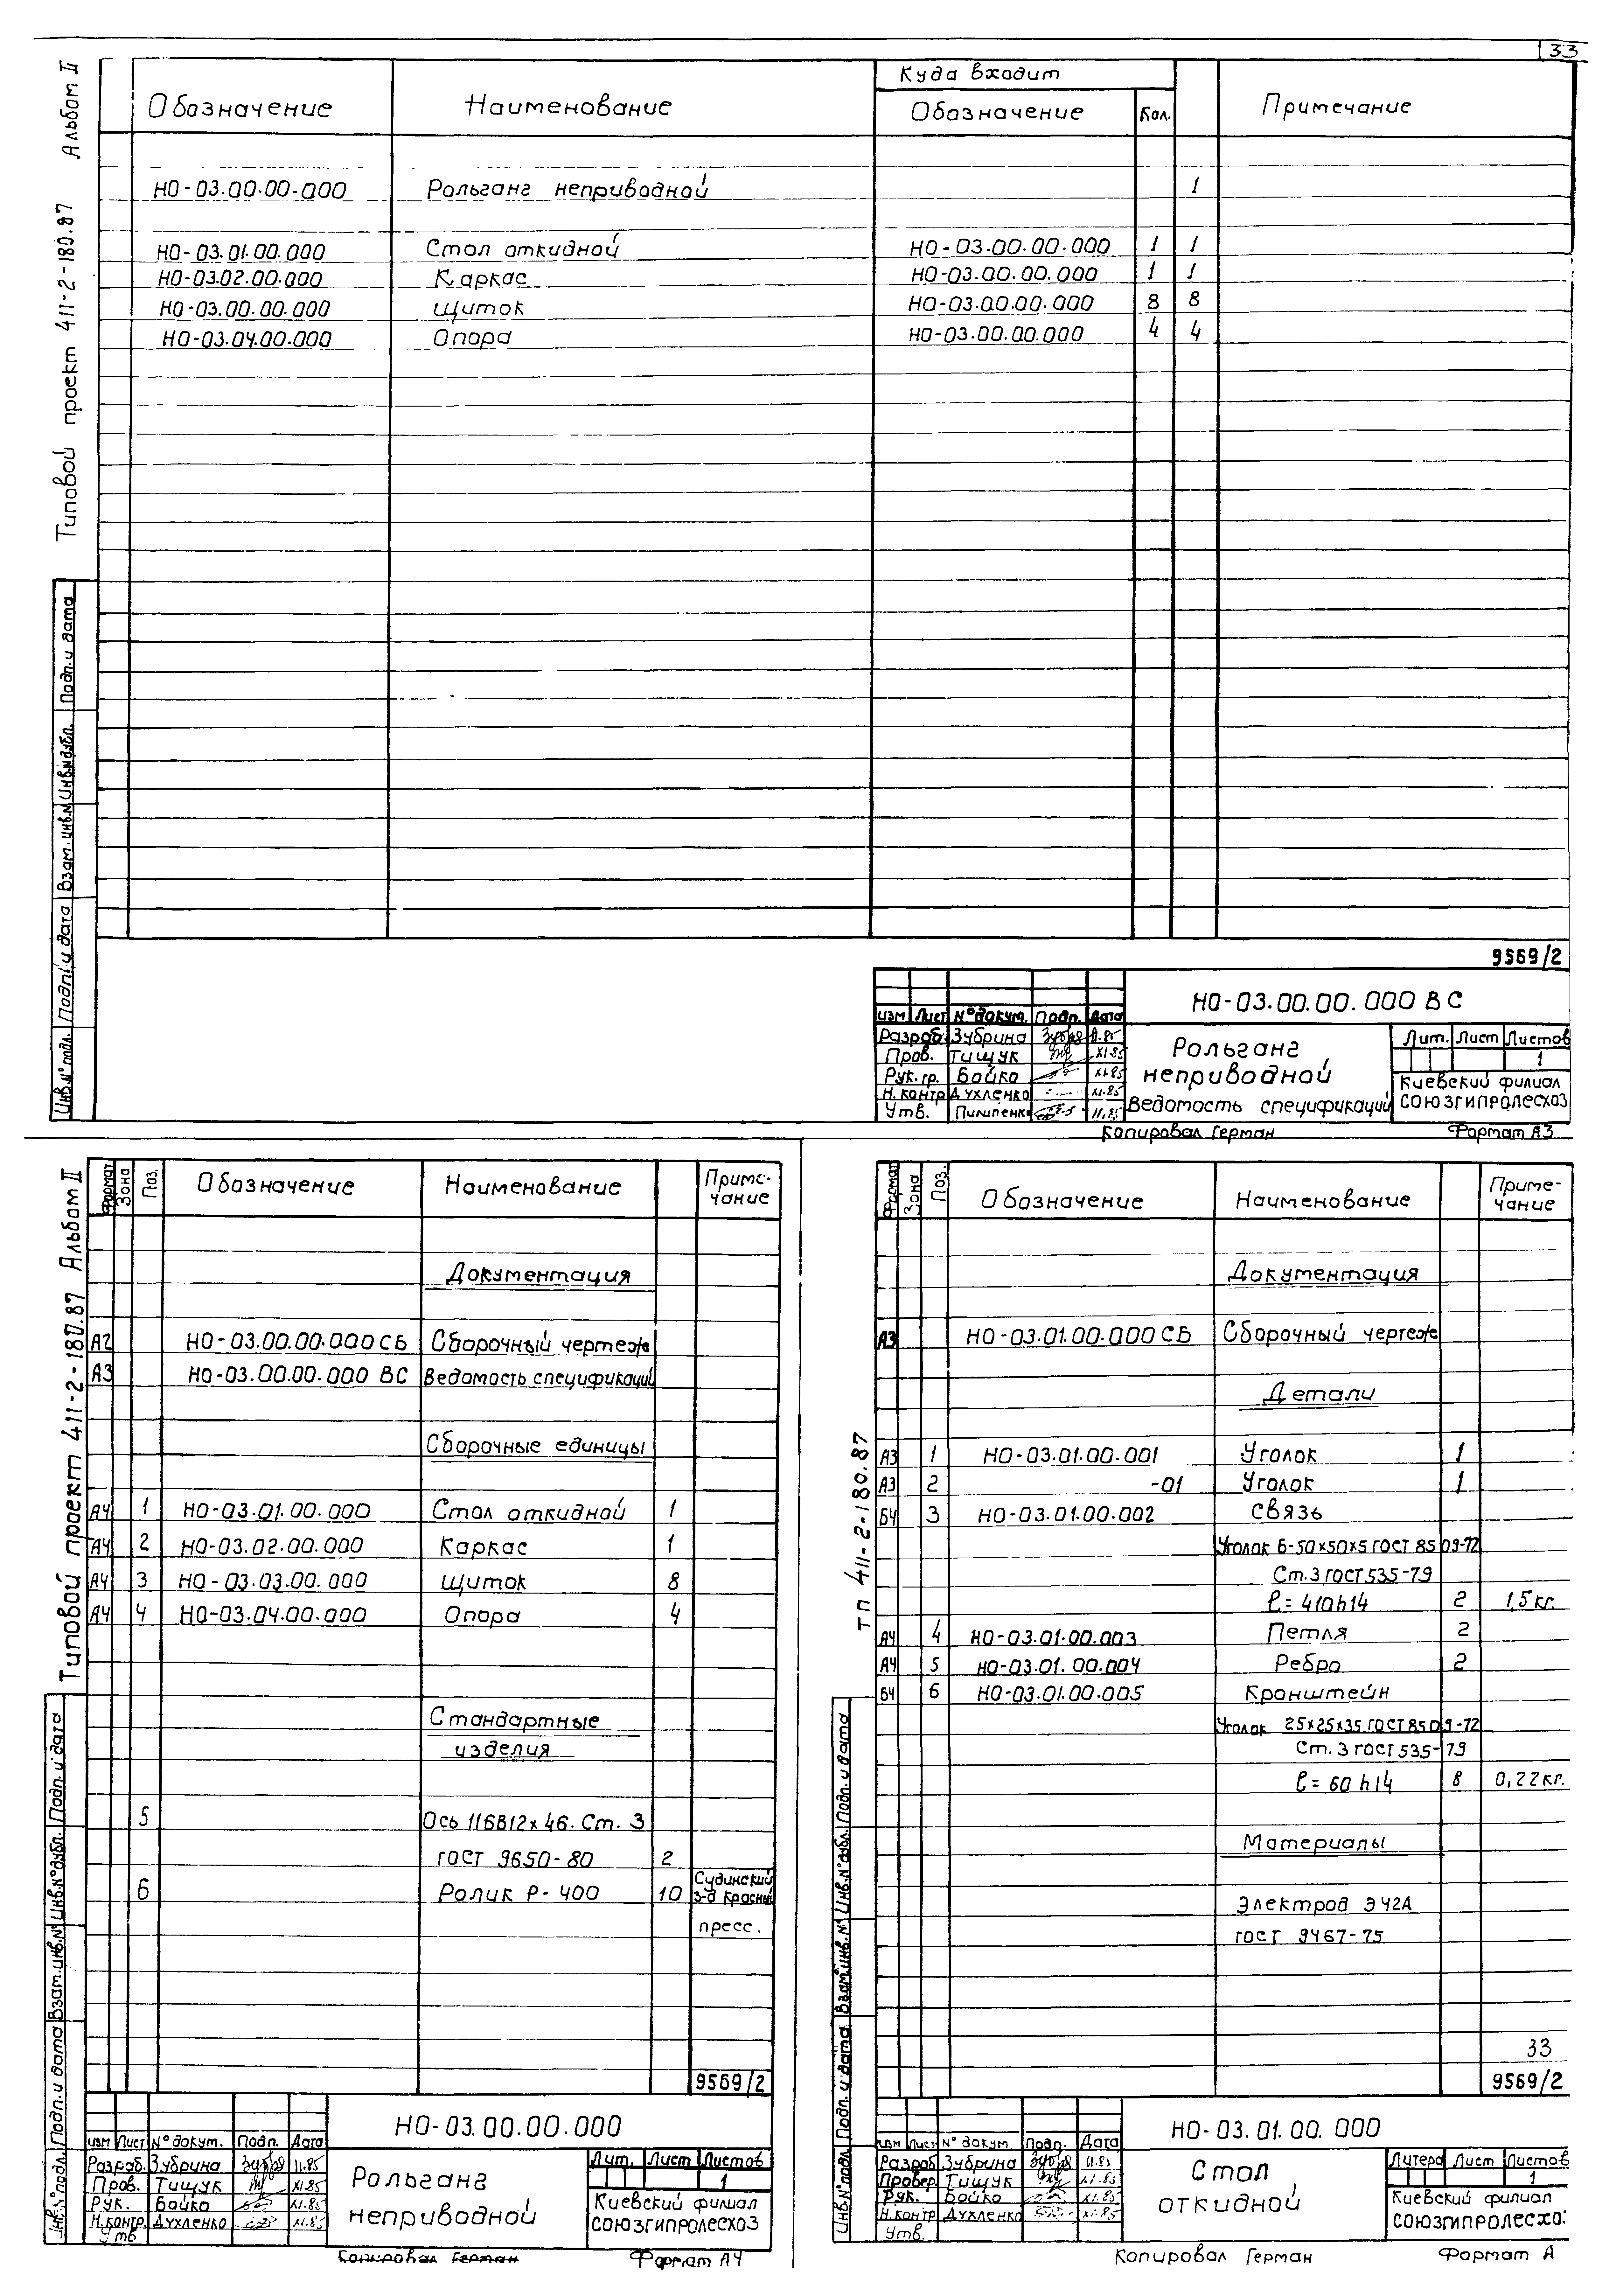 33
Типовой проект 411-2-180.87 Альбом II
Куда входит
Обозначение Наименование Обозначение Кол. Примечание
НО-03.00.00.000 Рольганг неприводной 1
НО-03.01.00.000 Стол откидной НО-03.00.00.000 1 1
НО-03.02.00.000 Каркас НО-03.00.00.000 1 1
НО-03.00.00.000 Щиток НО-03.00.00.000 8 8
НО-03.04.00.000 Опора НО-03.00.00.000 4 4
Инв.№ подл. Подп. и дата Взам.инв.№ Инв.№ дубл. Подп. и дата
9569/2
НО-03.00.00.000 ВС
Изм Лист № докум. Подп. Дата
Разраб. Зубрина 11.85
Пров. Тищук XI.85
Рук. гр. Бойко XI.85
Н. контр Духленко XI.85
Утв. Пилипенко 11.85
Рольганг
неприводной
Ведомость спецификаций
Лит. Лист Листов
1
Киевский филиал
СОЮЗГИПРОЛЕСХОЗ
Копировал Герман Формат А3
Типовой проект 411-2-180.87 Альбом II
Формат Зона Поз. Обозначение Наименование Приме-
чание
Документация
А2 НО-03.00.00.000 СБ Сборочный чертеж
А3 НО-03.00.00.000 ВС Ведомость спецификаций
Сборочные единицы
А4 1 НО-03.01.00.000 Стол откидной 1
А4 2 НО-03.02.00.000 Каркас 1
А4 3 НО-03.03.00.000 Щиток 8
А4 4 НО-03.04.00.000 Опора 4
Стандартные
изделия
5 Ось 116В12х46. Ст. 3
ГОСТ 9650-80 2
6 Ролик Р-400 10 Судинский
з-д Красный
пресс.
Инв.№ подл. Подп. и дата Взам.инв.№ Инв.№ дубл. Подп. и дата
9569/2
НО-03.00.00.000
Изм Лист № докум. Подп. Дата
Разраб. Зубрина 11.85
Пров. Тищук XI.85
Рук. Бойко XI.85
Н. контр. Духленко XI.85
Утв.
Рольганг
неприводной
Лит. Лист Листов
1
Киевский филиал
СОЮЗГИПРОЛЕСХОЗ
Копировал Герман Формат А4
ТП 411-2-180.87
Формат Зона Поз. Обозначение Наименование Приме-
чание
Документация
А3 НО-03.01.00.000 СБ Сборочный чертеж
Детали
А3 1 НО-03.01.00.001 Уголок 1
А3 2 -01 Уголок 1
БЧ 3 НО-03.01.00.002 Связь
Уголок Б-50х50х5 ГОСТ 8509-72
Ст.3 ГОСТ 535-79
ℓ= 410h14 2 1,5кг.
А4 4 НО-03.01.00.003 Петля 2
А4 5 НО-03.01.00.004 Ребро 2
БЧ 6 НО-03.01.00.005 Кронштейн
Уголок 25х25х35 ГОСТ 8509-72
Ст. 3 ГОСТ 535-79
ℓ= 60 h14 8 0,22кг.
Материалы
Электрод Э42А
ГОСТ 9467-75
33
Инв.№ подл. Подп. и дата Взам.инв.№ Инв.№ дубл. Подп. и дата
9569/2
НО-03.01.00.000
Изм Лист № докум. Подп. Дата
Разраб Зубрина 11.85
Провер. Тищук XI.85
Рук. Бойко XI.85
Н. контр Духленко XI.85
Утв.
Стол
откидной
Литера Лист Листов
1
Киевский филиал
СОЮЗГИПРОЛЕСХОЗ
Копировал Герман Формат А